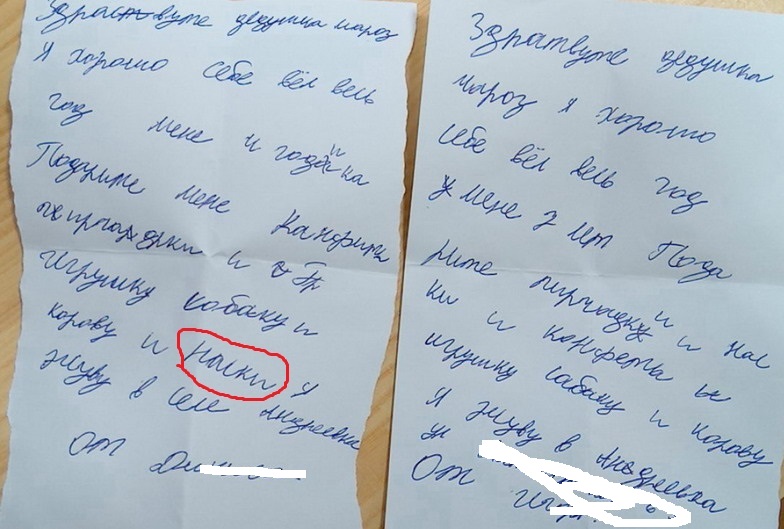 Здраствуте дедушка мароз
Я хорошо себе вёл весь
год мене и годика
Подрите мене канфиты
и
игрушку собаку и
корову и наски я
жуву в селе Андреевка
От
Здратвуте дедушка
мароз я хорошо
себе вёл весь год
у мене 7 лет Пода
рите пирчадку и и нас
ки и конфеты и
игрушку сабаку и корову
Я жуву в Андреевка
ул
От